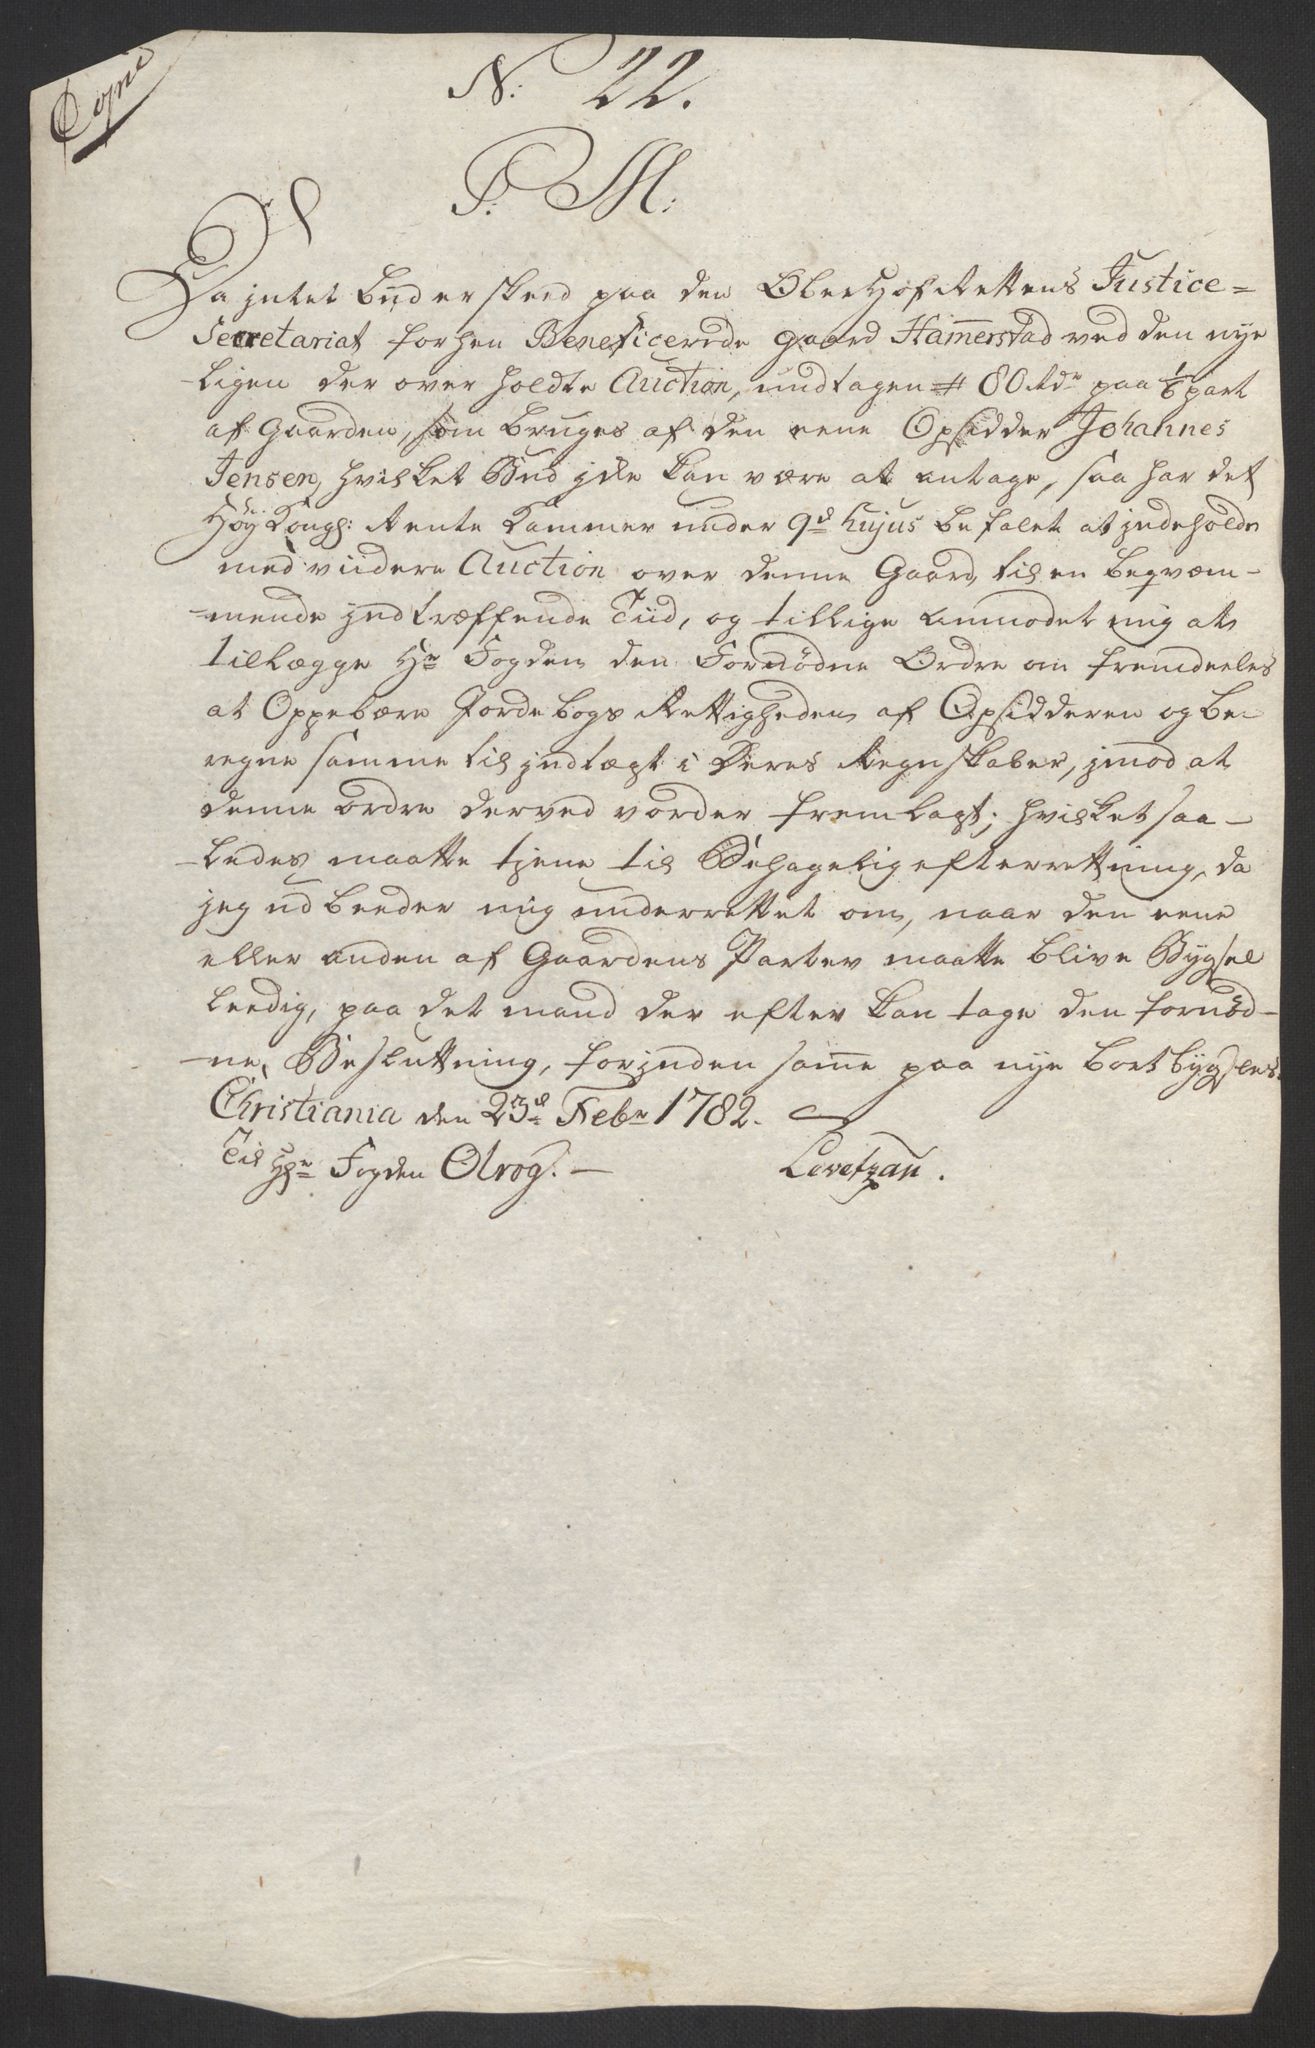 Copie
N: 22.
P: M:
Da jntet bud er skeed paa den OberHofRettens Justice=
Secretariat forhen Beneficerede gaard Ham̅erstad ved den nye
ligen der over holdte Auction, undtagen # 80 rdr paa 1/6 part
af Gaarden, som bruges af den eene Opsidder Johannes
Jensen, hvilket Bud jcke kan være at antage, saa har det
Høy Kongl: Rente Kammer under 9d hujus befalet at jndeholde
med viidere Auction over denne Gaard, til en beqvæm-
-mende jndtræffende Tiid, og tillige anmodet mig at
tillægge Hr Fogden den Fornødne Ordre om fremdeeles
at Oppebære Jordebogs Rettigheden af Opsidderen og be-
regne samme til jndtægt i Deres Regnskaber, jmod at
denne ordre derved vorder fremlagt; hvilket saa-
-ledes maatte tjene til Behagelig efterretning, da
jeg udbeeder mig underrettet om, naar den eene
eller anden af Gaardens Parter maatte blive Bygsel
leedig, paa det mand der efter kan tage den fornød-
-ne, Beslutning, forjnden sam̅e paa nye bortbygsles.
Christiania den 23d Febr 1782.
Til Hr Fogden Olrog. - Levetzau.